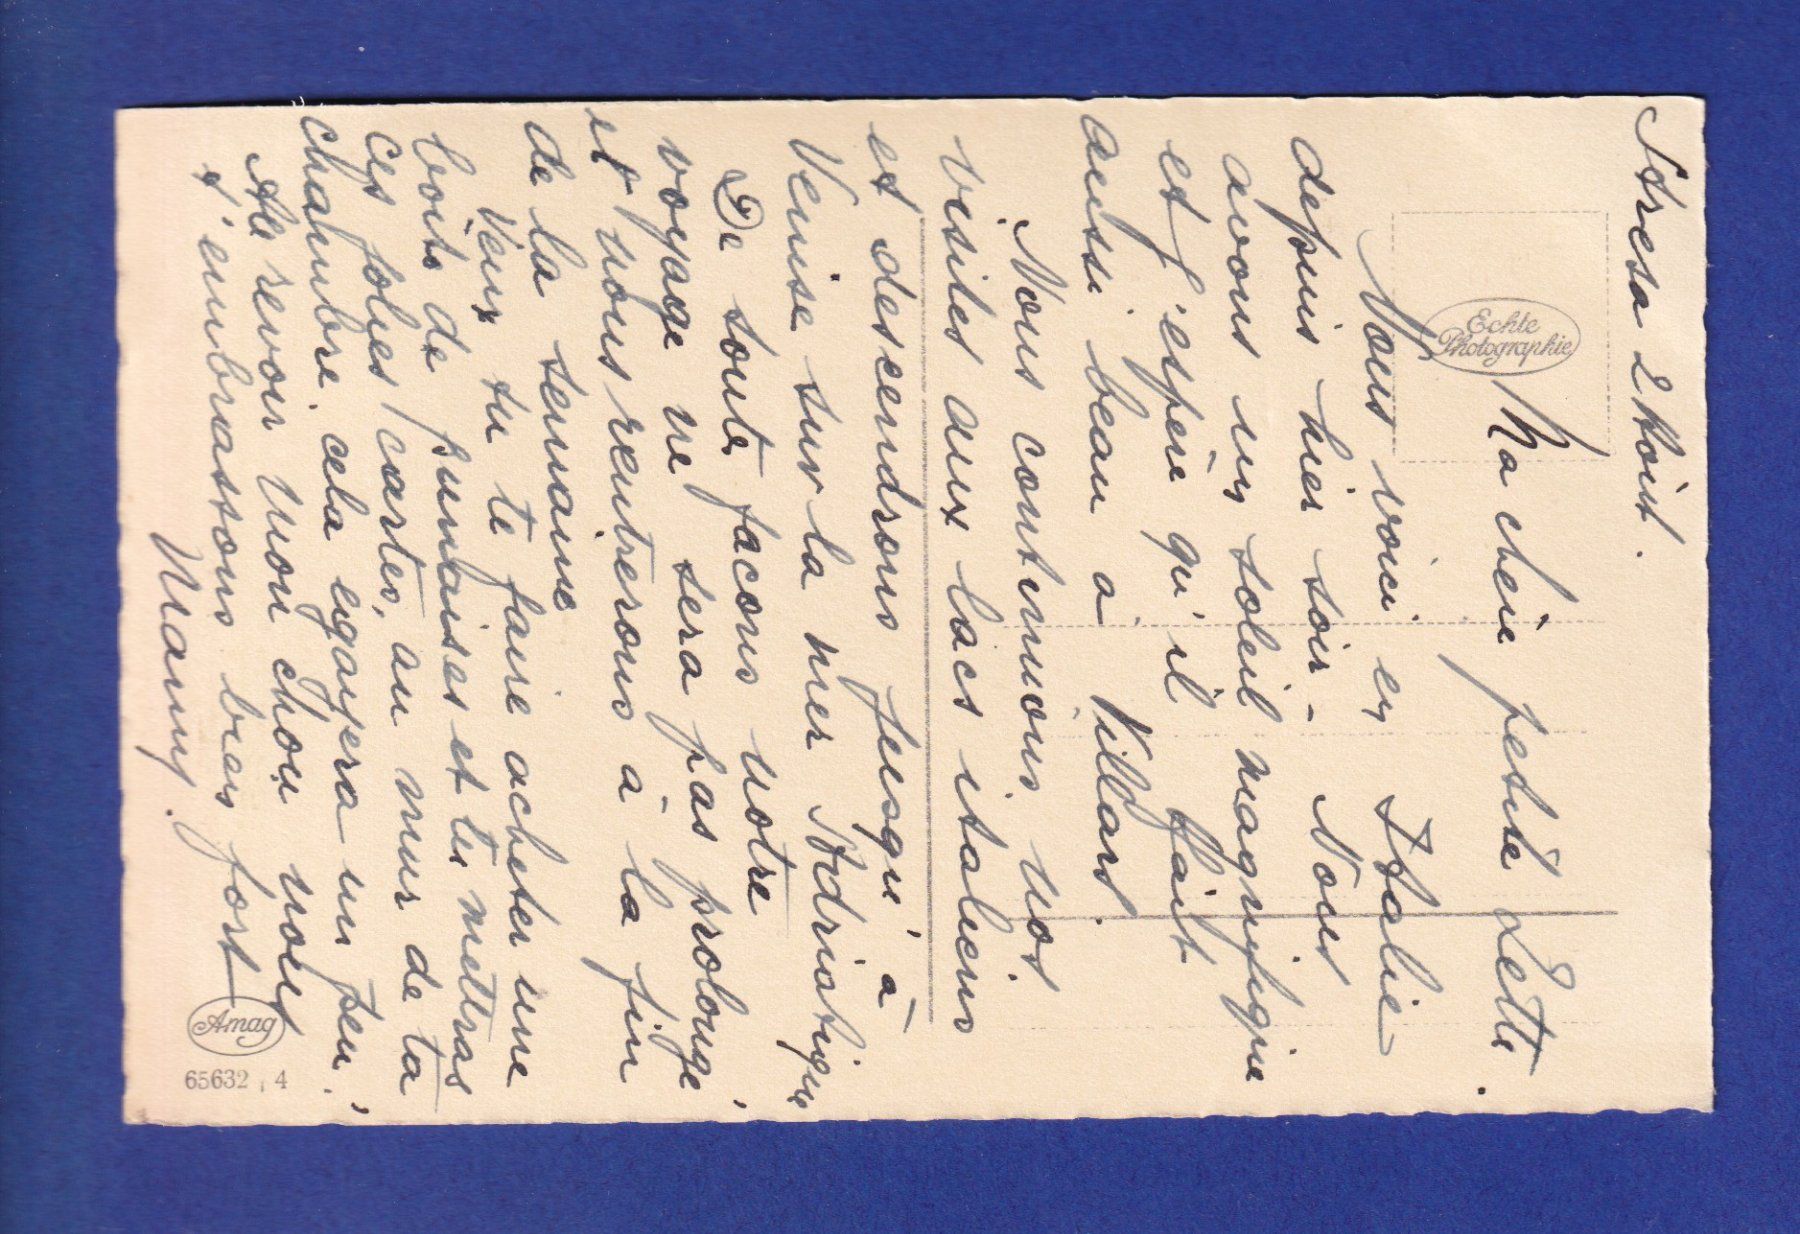 Stresa 2 Août.
Ma chère petite Lette.
Nous voici en Italie
depuis hier soir - Nous
avons un soleil magnifique
et j'espère qu'il fait
aussi beau à Villars.
Nous continuons nos
visites aux lacs italiens
et descendrons jusqu'à
Venise sur la mer Adriatique
De toute facons notre
voyage ne sera pas prolongé,
et nous rentrerons à la fin
de la semaine
Veux tu te faire acheter une
boite de punaises et tu mettras
ces jolies cartes, au mur de ta
chambre, cela egayera un peu.
Au revoir mon chou nous
t'embrassons bien fort
Mamy.
Echte
Photographie
Amag
65632, 4